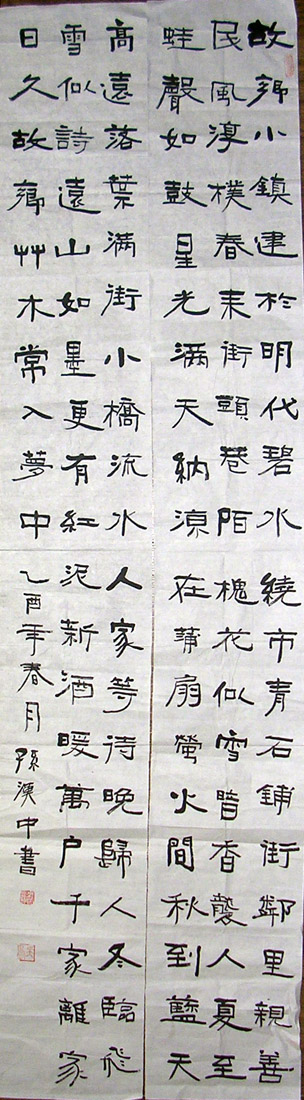 故鄉小鎮建於明代碧水繞市青石鋪街鄰里親善
民風淳樸春來街頭巷陌槐花似雪暗香襲人夏至
蛙聲如鼓星光滿天納涼在蒲扇螢火間秋到藍天
高遠落葉滿街小橋流水人家等待晚歸人冬臨飛
雪似詩遠山如墨更有紅泥新酒暖萬戶千家離家
日久故鄉艸木常入夢中乙酉年春月孫漢中書